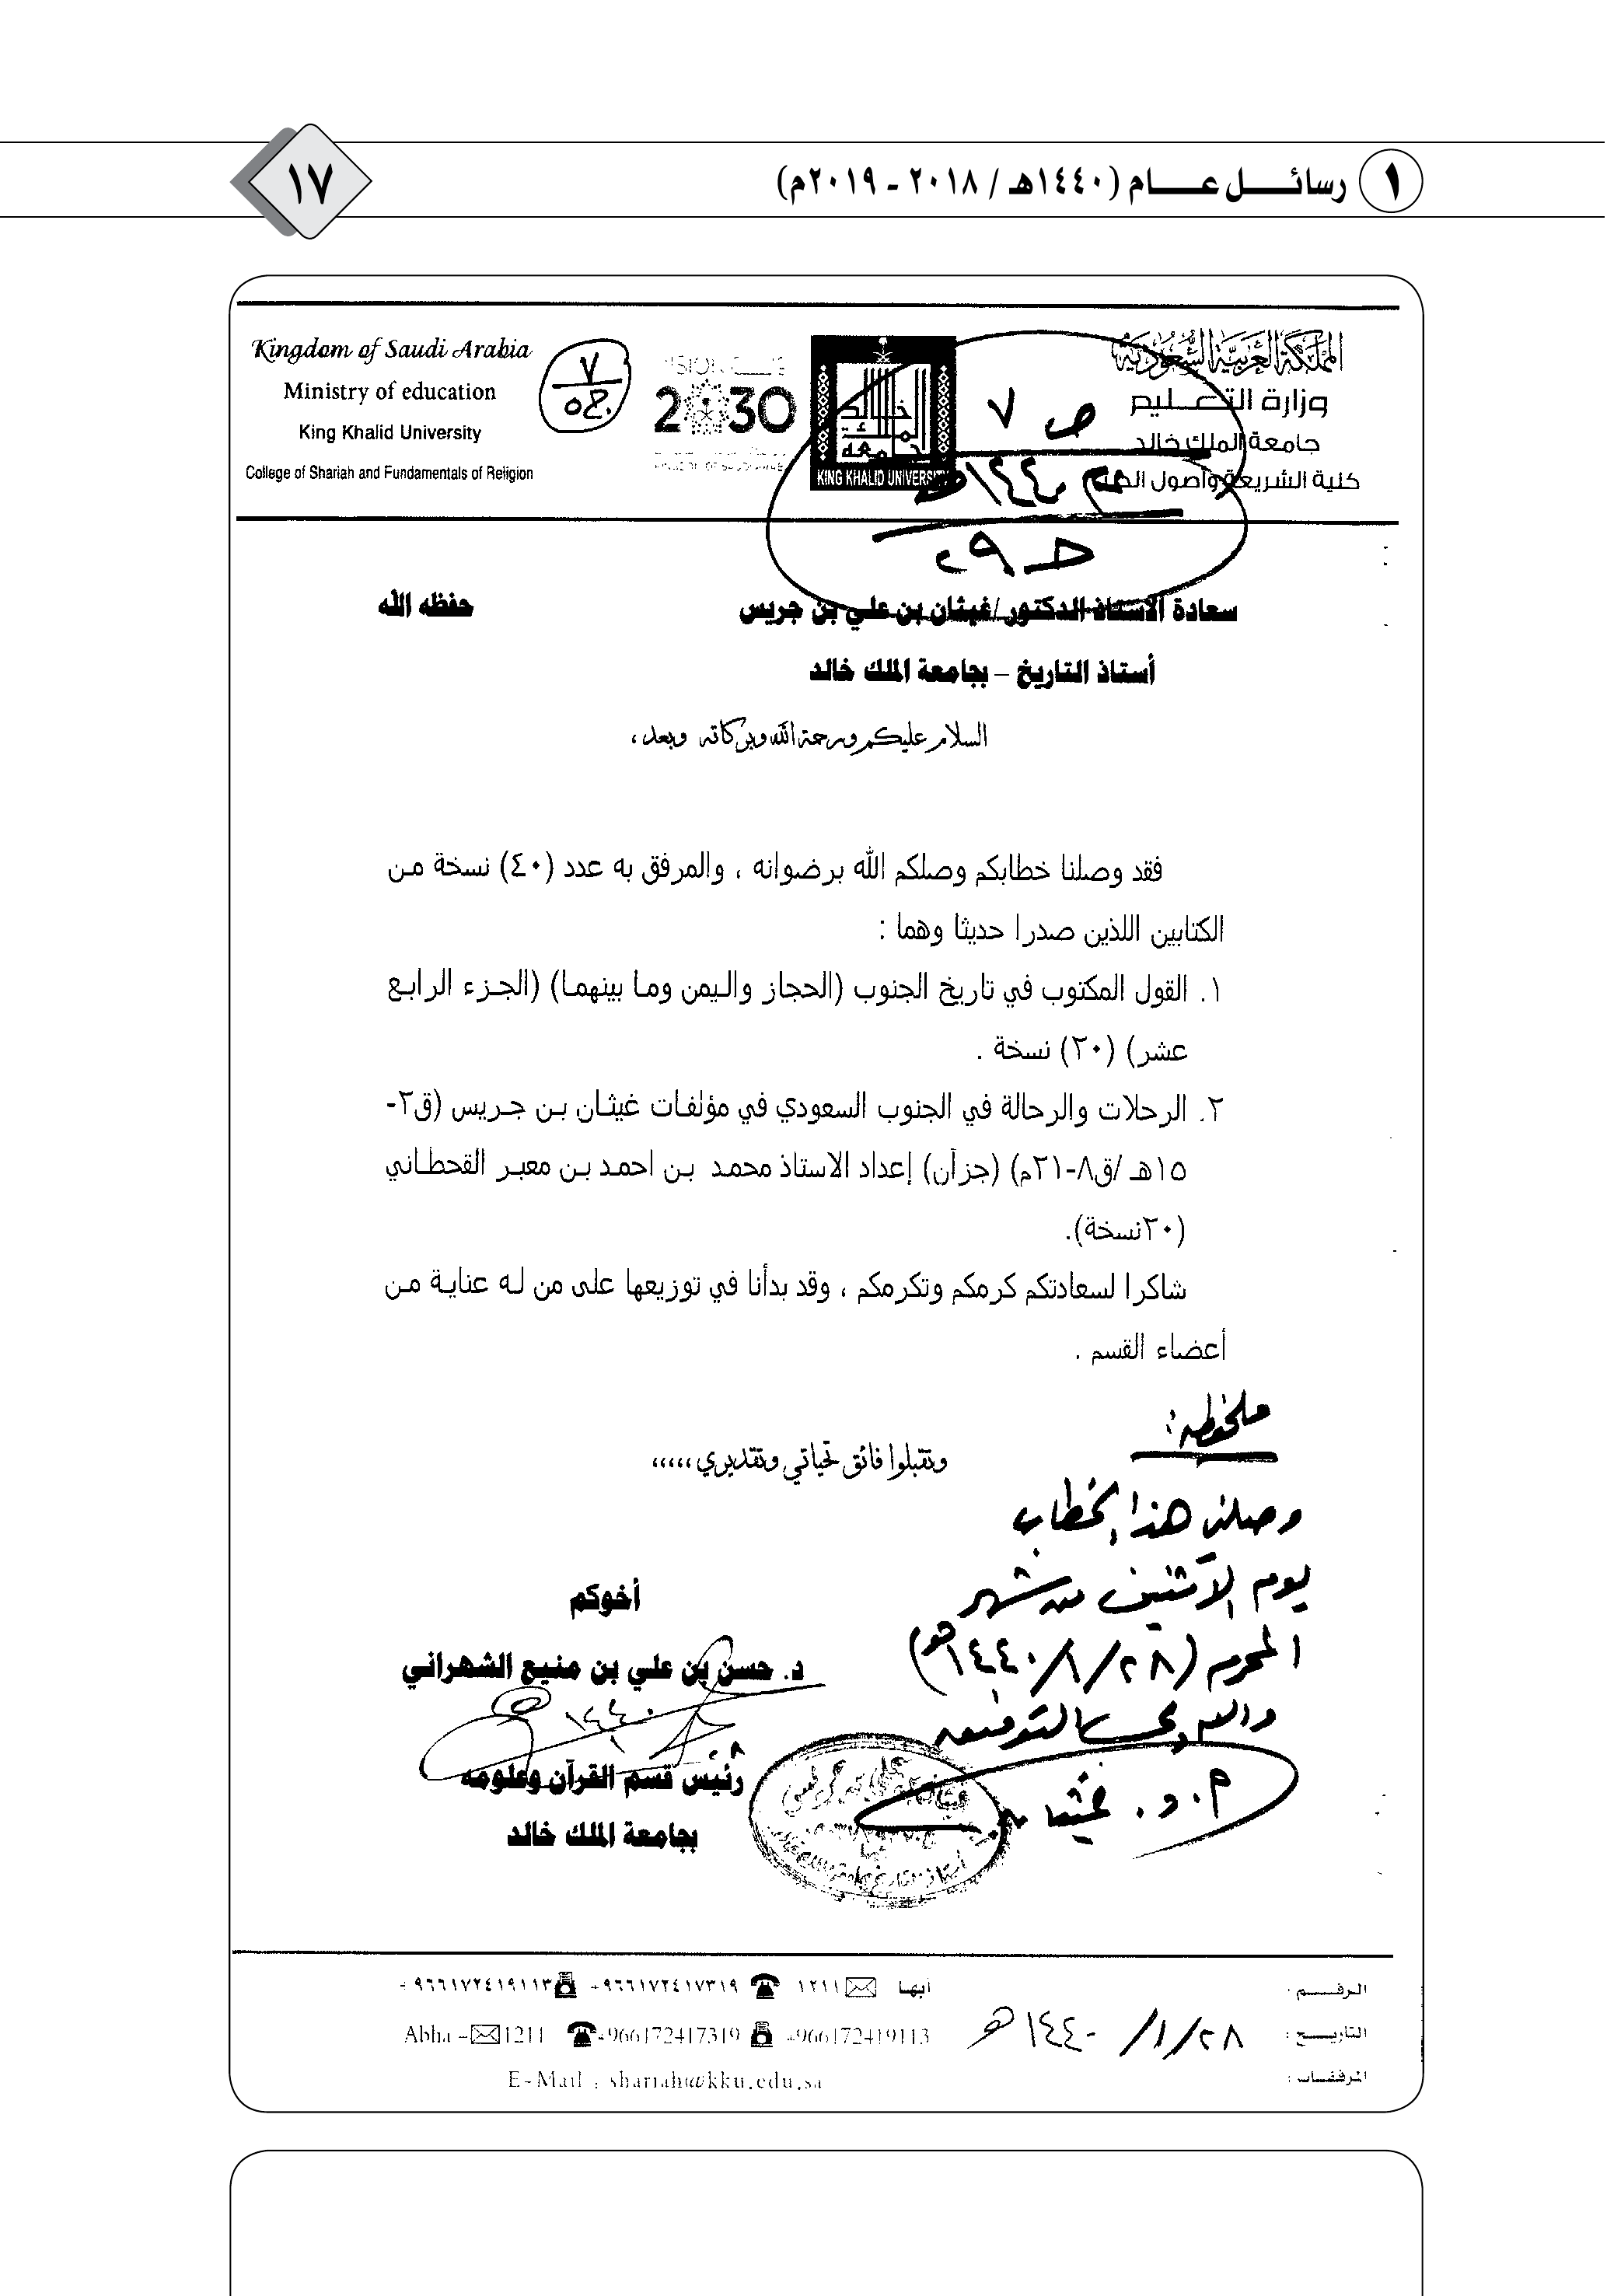 ١ رسائـــل عـــام (١٤٤٠هـ / ٢٠١٨ - ٢٠١٩م)
١٧
المملكة العربية السعودية
وزارة التعليم
جامعة الملك خالد
كلية الشريعة وأصول
Kingdom of Saudi Arabia
Ministry of education
King Khalid University
College of Shariah and Fundamentals of Religion
2030
KING KHALID UNIVERSITY
ص ٧
١٤٤٠هـ
سعادة الاستاذ الدكتور/غيثان بن علي بن جريس حفظه الله
أستاذ التاريخ – بجامعة الملك خالد
السلام عليكم ورحمة الله وبركاته وبعد،
فقد وصلنا خطابكم وصلكم الله برضوانه ، والمرفق به عدد (٤٠) نسخة من
الكتابين اللذين صدرا حديثا وهما :
١. القول المكتوب في تاريخ الجنوب (الحجاز واليمن وما بينهما) (الجزء الرابع
عشر) (٢٠) نسخة .
٢. الرحلات والرحالة في الجنوب السعودي في مؤلفات غيثان بن جريس (ق٢-
١٥هـ /ق٨-٢١م) (جزآن) إعداد الاستاذ محمد بن احمد بن معبر القحطاني
(٢٠نسخة).
شاكرا لسعادتكم كرمكم وتكرمكم ، وقد بدأنا في توزيعها على من له عناية من
أعضاء القسم .
وتقبلوا فائق تحياتي وتقديري ،،،،،
ملحوظة:
وصلني هذا الخطاب
يوم الاثنين من شهر
المحرم (١٤٤٠/١/٢٨هـ)
والله ولي التوفيق
أ. د. غيثان
أخوكم
د. حسن بن علي بن منيع الشهراني
رئيس قسم القرآن وعلومه
بجامعة الملك خالد
الرقـــم :
التاريـــخ : ١٤٤٠/١/٢٨هـ
المرفقـات :
أبهـا ١٢١١ ٩٦٦١٧٢٤١٧٣١٩+ ٩٦٦١٧٢٤١٩١١٣+
Abha - 1211 +966172417319 +966172419113
E-Mail : shariah@kku.edu.sa